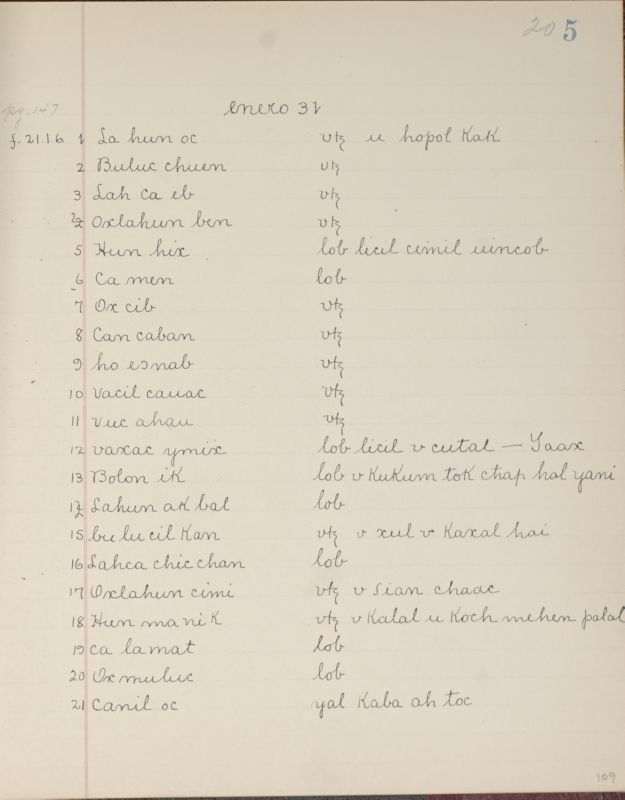 20 5
pg. 147
enero 31
f. 21.1.6. 1 La hun oc utz u hopol Kak
2 Buluc chuen utz
3 Lah ca eb utz
4 Oxlahun ben utz
5 Hun hix lob licil cimil uincob
6 Ca men lob
7 Ox cib utz
8 Can caban utz
9 ho eɔnab utz
10 vacil cauac utz
11 vuc ahau utz
12 vaxac ymix lob licil v cutal — Yaax
13 Bolon ik lob v Kukum tok chap hal yani
14 Lahun ak bal lob
15 bu lu cil Kan utz v xul v Kaxal hai
16 Lahca chic chan lob
17 Oxlahun cimi utz v sian chaac
18 Hun ma ni K utz v Kalal u Koch mehen palal
19 ca lamat lob
20 Ox muluc lob
21 Canil oc yal Kaba ah toc
109